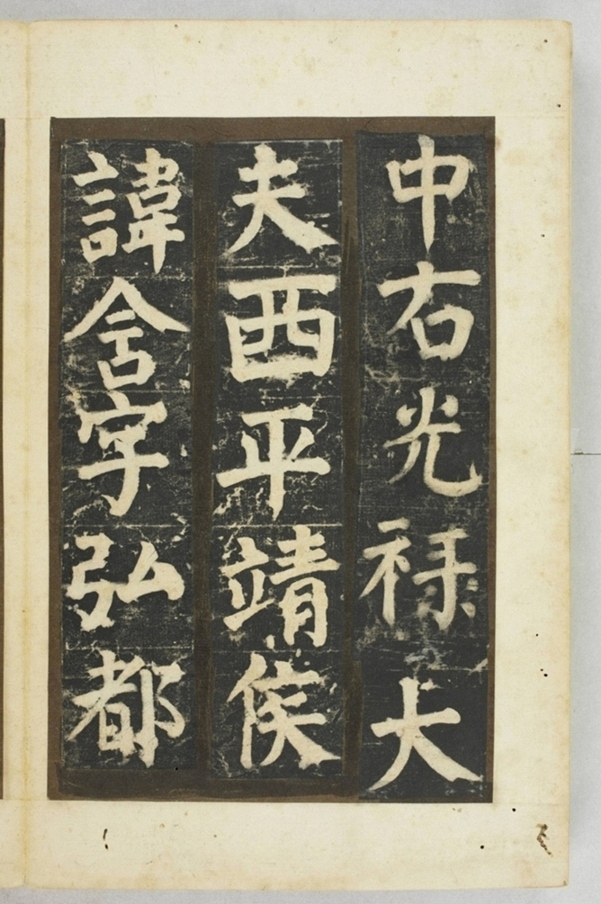 中右光禄大
夫西平靖侯
諱含字弘都